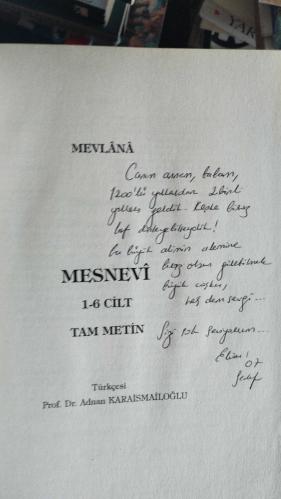 MEVLÂNÂ
Canım annem, babam,
1200'lü yıllardan 2binli
yıllara geldik. Keşke biraz
laf dinleyebilseydik!
bu büyük alimin alemine
biraz olsun girebilmek
büyük
her dem sevgi...
Sizi çok seviyorum...
07
MESNEVÎ
1-6 CİLT
TAM METİN
Türkçesi
Prof. Dr. Adnan KARAİSMAİLOĞLU